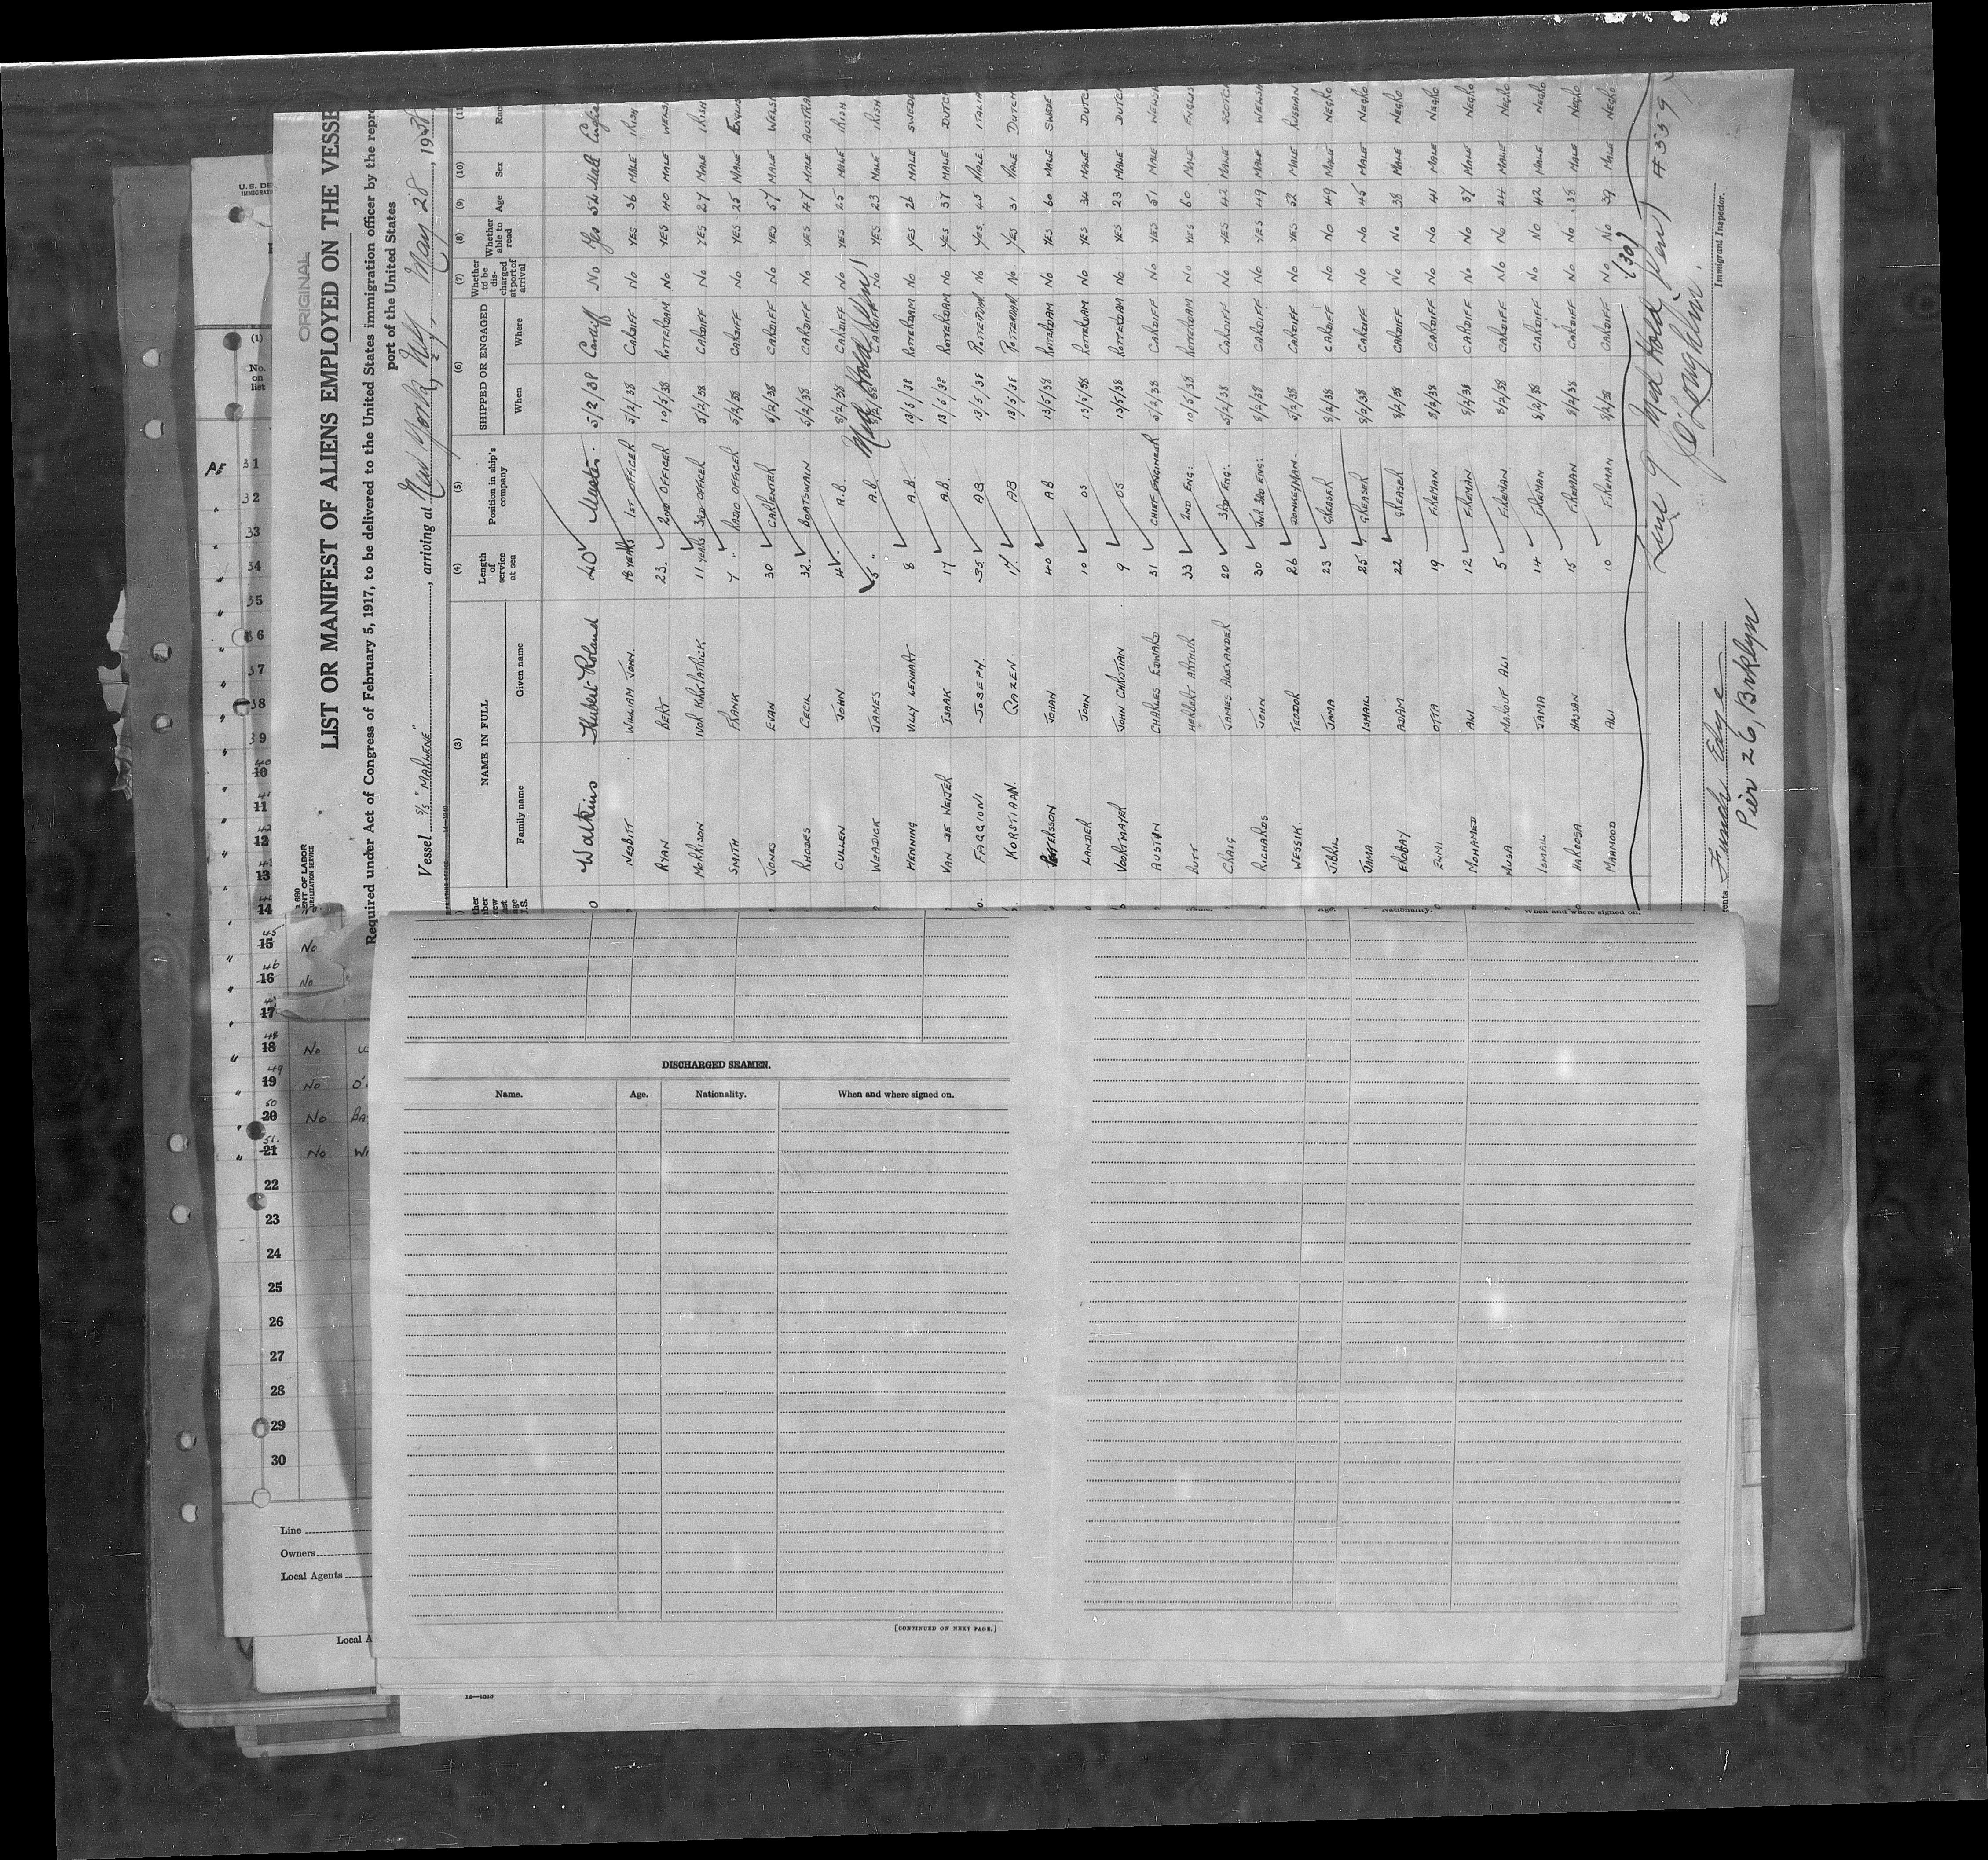 ORIGINAL
LIST OR MANIFEST OF ALIENS EMPLOYED ON THE VESSE
Required under Act of Congress of February 5, 1917, to be delivered to the United States immigration officer by the repre
port of the United States
Vessel S/S "MARKLENE", arriving at New York, May 28, 1938
(3) (4) (5) (6) (7) (8) (9) (10)
NAME IN FULL Length of service at sea Position in ship's company SHIPPED OR ENGAGED Whether to be discharged at port of arrival Whether able to read Age Sex Rac
Family name Given name When Where
Watkins Hubert Roland 40 Master. 5/2/38 Cardiff No Yes 56 Male
NESBITT WILLIAM JOHN. 18 YEARS 1ST OFFICER 5/2/38 CARDIFF No YES 36 MALE IRISH
RYAN BERT 23. 2ND OFFICER 10/5/38 ROTTERDAM No YES 40 MALE WELSH
MORRISON IVOR KIRKPATRICK 11 YEARS 3RD OFFICER 5/2/38 CARDIFF No YES 27 MALE IRISH
SMITH FRANK 7 " RADIO OFFICER 5/2/38 CARDIFF No YES 25 MALE ENGLIS
JONES EVAN 30 CARPENTER 5/2/38 CARDIFF No YES 57 MALE WELSH
RHODES CECIL 32. BOATSWAIN 5/2/38 CARDIFF No YES 47 MALE AUSTRA
CULLEN JOHN 4 A.B. 5/2/38 CARDIFF No YES 25 MALE IRISH
WEADICK JAMES 5 " A.B. CARDIFF No YES 23 MALE IRISH
HENNING VILLY LENNART 8 A.B. 13/5/38 ROTTERDAM No YES 26 MALE SWEDE
VAN DE WEIJER ISAAK 17 A.B. 13/5/38 ROTTERDAM No YES 37 MALE DUTCH
FAGGIONI JOSEPH. 35 AB 13/5/38 ROTTERDAM No YES. 45 MALE. ITALIA
KORSTIAAN. 17. AB 13/5/38 ROTTERDAM No. YES 31 MALE DUTCH
PETTERSSON JOHAN 40 AB 13/5/38 ROTTERDAM No YES 60 MALE SWEDE
LANDER JOHN 10 OS 13/5/38 ROTTERDAM No YES 34 MALE DUTCH
VOORTMAYER JOHN CHRISTIAN 9 OS 13/5/38 ROTTERDAM No YES 23 MALE DUTCH
AUSTIN CHARLES EDWARD 31 CHIEF ENGINEER 5/2/38 CARDIFF No YES 51 MALE WELSH
BUTT HERBERT ARTHUR 33 2ND ENG: 10/5/38 ROTTERDAM No YES 60 MALE ENGLIS
CRAIG JAMES ALEXANDER 20 3RD ENG: 5/2/38 CARDIFF No YES 42 MALE SCOTCH
RICHARDS JOHN 30 JNR 3RD ENG: 5/2/38 CARDIFF No YES 49 MALE WELSH
WESSIK. TEODOR 26 DONKEYMAN. 5/2/38 CARDIFF No YES 52 MALE RUSSIAN
JIBRIL JAMA 23 GREASER 8/2/38 CARDIFF No NO 49 MALE NEGRO
JAMA ISMAIL 25 GREASER 8/2/38 CARDIFF No No 45 MALE NEGRO
EROBAY ADAM 22 GREASER 8/2/38 CARDIFF No No 38 MALE NEGRO
EUMI OTTA 19 FIREMAN 8/2/38 CARDIFF No No 41 MALE NEGRO
MOHAMED ALI 12 FIREMAN 8/2/38 CARDIFF No No 37 MALE NEGRO
MUSA MAROUF ALI 5 FIREMAN 8/2/38 CARDIFF No No 24 MALE NEGRO
ISMAIL JAMA 14 FIREMAN 8/2/38 CARDIFF No No 42 MALE NEGRO
HASSAN 15 FIREMAN 8/2/38 CARDIFF No No 38 MALE NEGRO
MAHMOOD ALI 10 FIREMAN 8/2/38 CARDIFF No No 39 MALE NEGRO
(30)
Line 9 Med Hold #5359
Immigrant Inspector.
Funch Edye
Pier 26, Brklyn
(1)
No. on list
31
32
33
34
35
36
37
38
39
40
11
12
13
14
15 No
16 No
17
18 No
19 No
20 No
21 No
22
23
24
25
26
27
28
29
30
Line
Owners
Local Agents
Local A
DISCHARGED SEAMEN.
Name. Age. Nationality. When and where signed on.
[CONTINUED ON NEXT PAGE.]
Age. Nationality. When and where signed on.